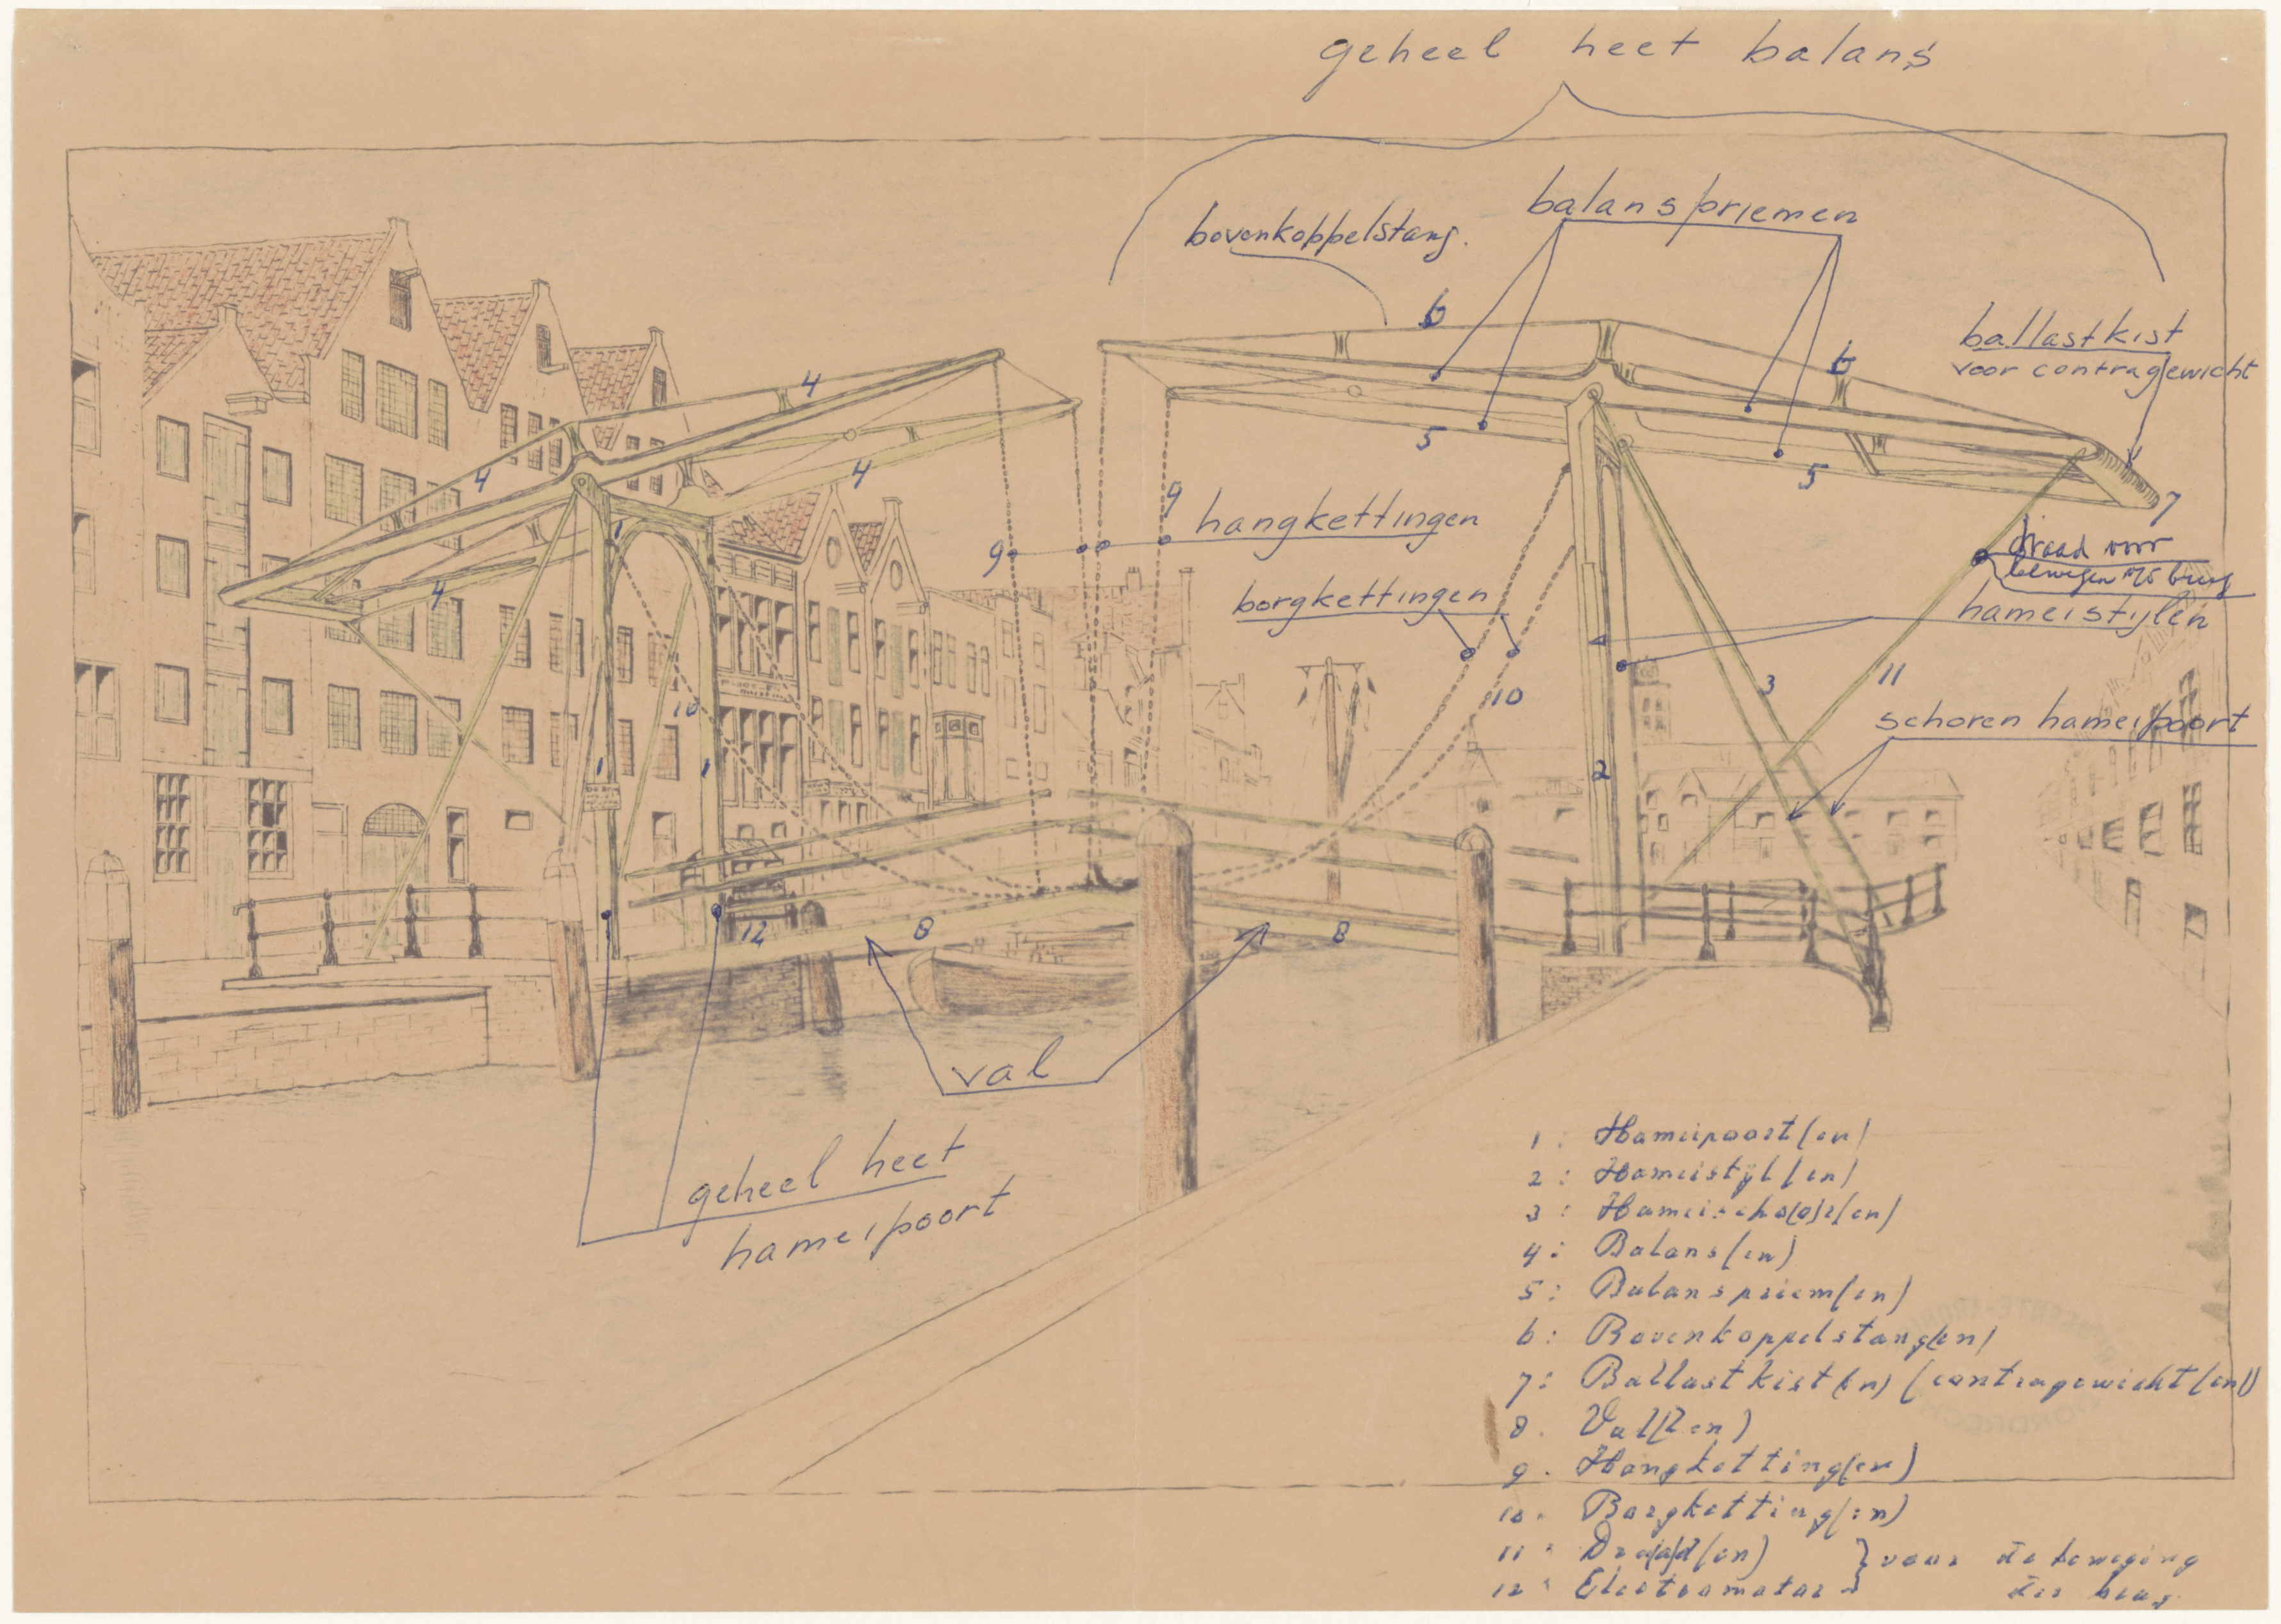 geheel heet balans
balanspriemen
bovenkoppelstang.
6
ballastkist
voor contragewicht
6
4
4
4
5
5
7
9
hangkettingen
9
draad voor
bewegen v/d brug
1
borgkettingen
hameistijlen
4
11
3
10
10
schoren hameipoort
1
1
2
12
8
8
val
geheel heet
hameipoort
1: Hameipoort(en)
2: Hameistijl(en)
3: Hameischo(o)r(en)
4: Balans(en)
5: Balanspriem(en)
6: Bovenkoppelstang(en)
7: Ballastkist(en) (contragewicht(en))
8. Val(len)
9. Hangketting(en)
10. Borgketting(en)
11. Dra(a)d(en) } voor de beweging
12. Electromotor der brug